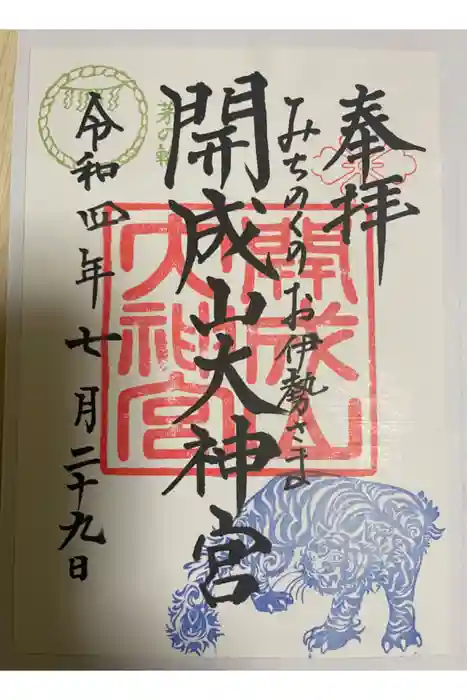 奉拝
みちのくのお伊勢さま
開成山大神宮
茅の輪
令和四年七月二十九日
開成山
大神宮